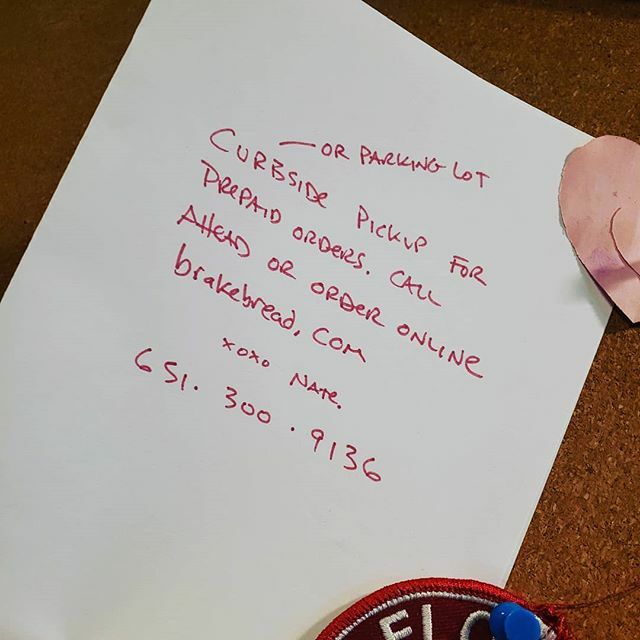 — OR PARKING LOT
CURBSIDE PICKUP FOR
PREPAID ORDERS. CALL
AHEAD OR ORDER ONLINE
brakebread.com
xoxo NATE.
651.300.9136